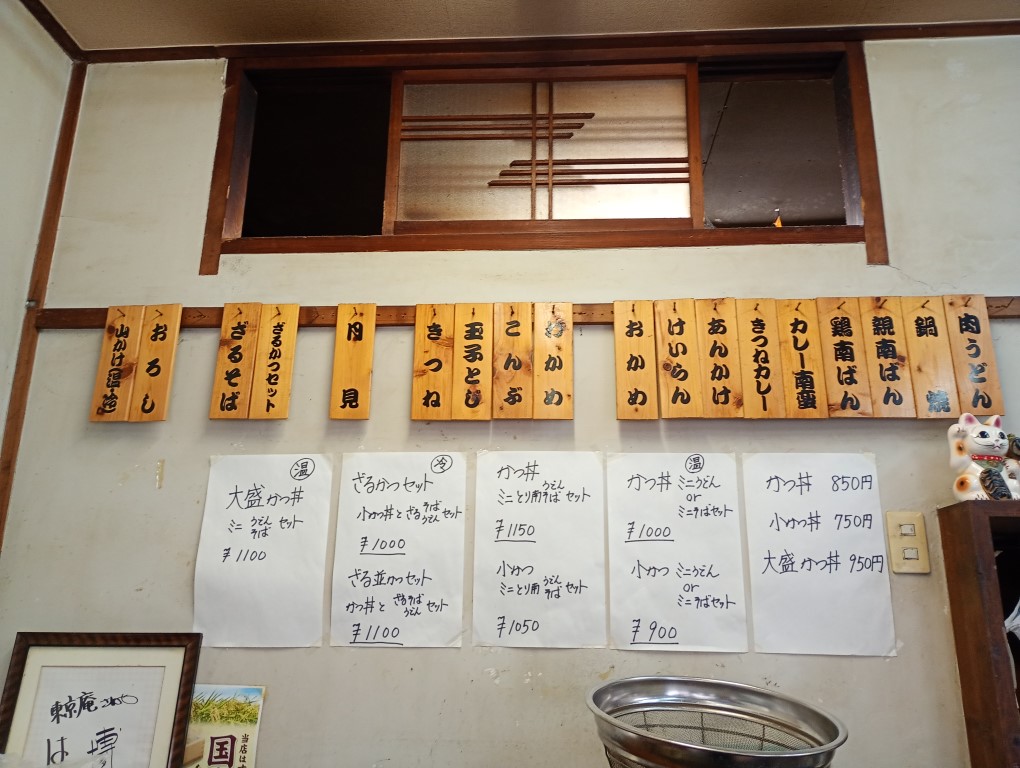 肉うどん
鍋焼
親南ばん
鶏南ばん
カレー南蛮
きつねカレー
あんかけ
けいらん
おかめ
おかめ
こんぶ
玉子とじ
きつね
月見
ざるかつセット
ざるそば
おろし
山かけ温冷
かつ丼 850円
小かつ丼 750円
大盛かつ丼 950円
温
かつ丼 ミニうどん
or
ミニそばセット
¥1000
小かつ ミニうどん
or
ミニそばセット
¥900
かつ丼
ミニとり南 うどん そば セット
¥1150
小かつ
ミニとり南 うどん そば セット
¥1050
冷
ざるかつセット
小かつ丼とざる そば うどん セット
¥1000
ざる並かつセット
かつ丼と ざるそば うどん セット
¥1100
温
大盛かつ丼
ミニ うどん そば セット
¥1100
東京庵
は
博
当店は
国